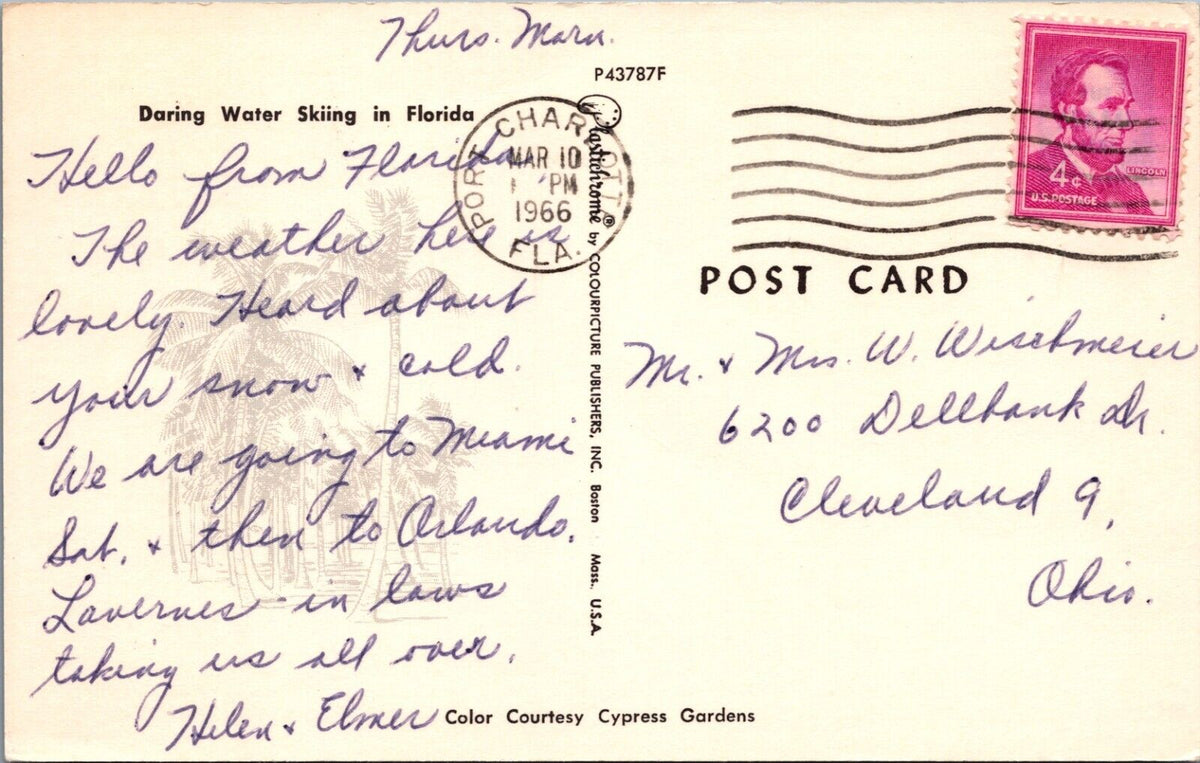 Thurs. Morn.
P43787F
Daring Water Skiing in Florida
Hello from Florida
The weather here is
lovely. Heard about
your snow + cold.
We are going to Miami
Sat. + then to Orlando.
Lavernes in laws
taking us all over.
Helen + Elmer
Color Courtesy Cypress Gardens
PORT CHARLOTTE
MAR 10
PM
1966
FLA.
Plastichrome® by COLOURPICTURE PUBLISHERS, INC. Boston Mass., U.S.A.
LINCOLN
4¢
U.S. POSTAGE
POST CARD
Mr. + Mrs. W. Wischmeier
6200 Dellbank Dr.
Cleveland 9,
Ohio.